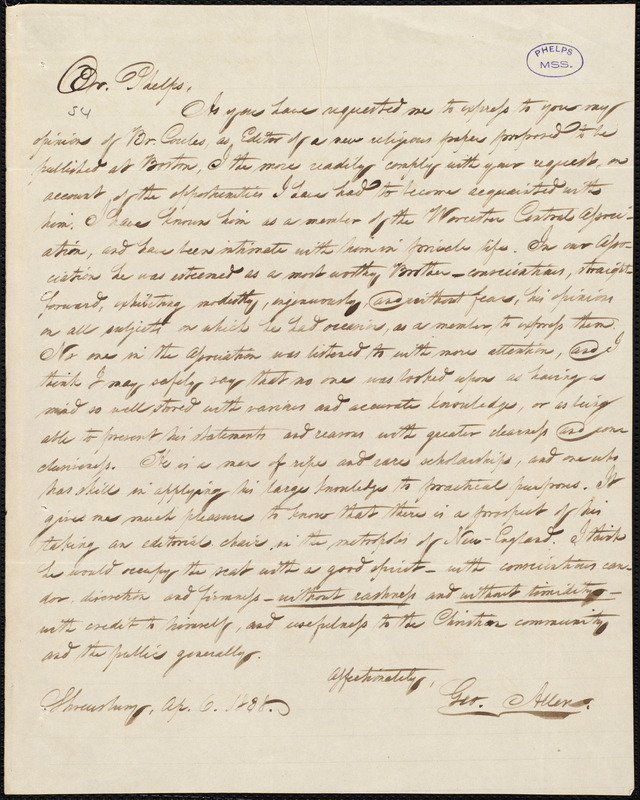 PHELPS
MSS.
Br. Phelps,
54
As you have requested me to express to you my
opinion of Br. Coules, as Editor of a new religious paper proposed to be
published at Boston, I the more readily comply with your request, on
account of the opportunities I have had to become acquainted with
him. I have known him as a member of the Worcester Central Associ-
ation, and have been intimate with him in private life. In our Asso-
ciation he was esteemed as a most worthy Brother – conscientious, straight
forward, exhibiting modestly, ingenuously, and without fear, his opinions
on all subjects on which he had occasion, as a member, to express them.
No one in the Association was listened to with more attention, and I
think I may safely say that no one was looked upon as having a
mind so well stored with various and accurate knowledge, or as being
able to present his statements and reasons with greater clearness and con-
clusiveness. He is a man of ripe and rare scholarship, and one who
has skill in applying his large knowledge to practical purposes. It
gives me much pleasure to know that there is a prospect of his
taking an editorial chair, in the metropolis of New-England. I think
he would occupy the seat with a good spirit – with conscientious can-
dor, discretion and firmness – without rashness and without timidity –
with credit to himself, and usefulness to the Christian community
and the public generally.
Affectionately,
Shrewsbury, Ap. 6. 1838. Geo. Allen.